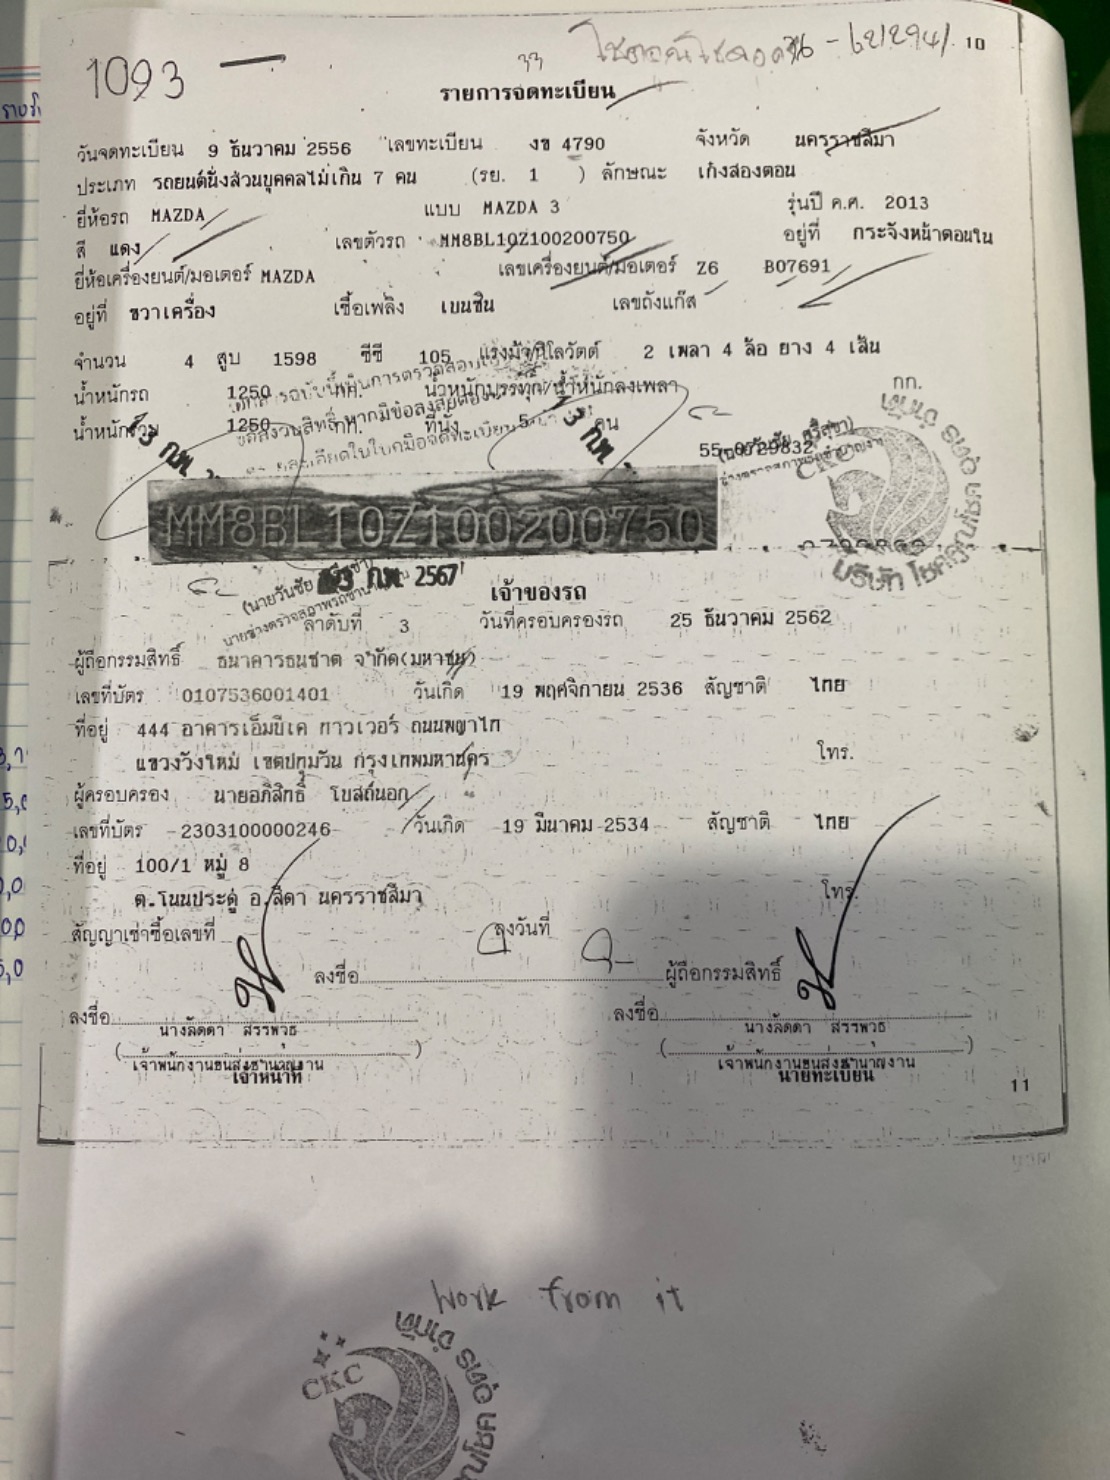 1093
33
10
รายการจดทะเบียน
วันจดทะเบียน 9 ธันวาคม 2556 เลขทะเบียน งข 4790 จังหวัด นครราชสีมา
ประเภท รถยนต์นั่งส่วนบุคคลไม่เกิน 7 คน (รย. 1 ) ลักษณะ เก๋งสองตอน
ยี่ห้อรถ MAZDA แบบ MAZDA 3 รุ่นปี ค.ศ. 2013
สี แดง เลขตัวรถ MM8BL10Z100200750 อยู่ที่ กระจังหน้าตอนใน
ยี่ห้อเครื่องยนต์/มอเตอร์ MAZDA เลขเครื่องยนต์/มอเตอร์ Z6 B07691
อยู่ที่ ขวาเครื่อง เชื้อเพลิง เบนซิน เลขถังแก๊ส
จำนวน 4 สูบ 1598 ซีซี 105 แรงม้า/กิโลวัตต์ 2 เพลา 4 ล้อ ยาง 4 เส้น
น้ำหนักรถ 1250 กก. น้ำหนักบรรทุก/น้ำหนักลงเพลา กก.
น้ำหนักรวม 1250 กก. ที่นั่ง 5 คน
13 ก.พ. 13 ก.พ.
55-0729832
(นายวันชัย ศรีสุขา)
CKC
MM8BL10Z100200750
บริษัท โชคคูณโชค 236 จำกัด
13 ก.พ. 2567
เจ้าของรถ
ลำดับที่ 3 วันที่ครอบครองรถ 25 ธันวาคม 2562
ผู้ถือกรรมสิทธิ์ ธนาคารธนชาต จำกัด(มหาชน)
เลขที่บัตร 0107536001401 วันเกิด 19 พฤศจิกายน 2536 สัญชาติ ไทย
ที่อยู่ 444 อาคารเอ็มบีเค ทาวเวอร์ ถนนพญาไท
แขวงวังใหม่ เขตปทุมวัน กรุงเทพมหานคร โทร.
ผู้ครอบครอง นายอภิสิทธิ์ โบสถ์นอก
เลขที่บัตร 2303100000246 วันเกิด 19 มีนาคม 2534 สัญชาติ ไทย
ที่อยู่ 100/1 หมู่ 8
ต.โนนประดู่ อ.สีดา นครราชสีมา โทร.
สัญญาเช่าซื้อเลขที่ ลงวันที่
ลงชื่อ ผู้ถือกรรมสิทธิ์
ลงชื่อ ลงชื่อ
นางลัดดา สรรพวุธ นางลัดดา สรรพวุธ
( ) ( )
เจ้าพนักงานขนส่งชำนาญงาน เจ้าพนักงานขนส่งชำนาญงาน
เจ้าหน้าที่ นายทะเบียน
11
work from it
CKC